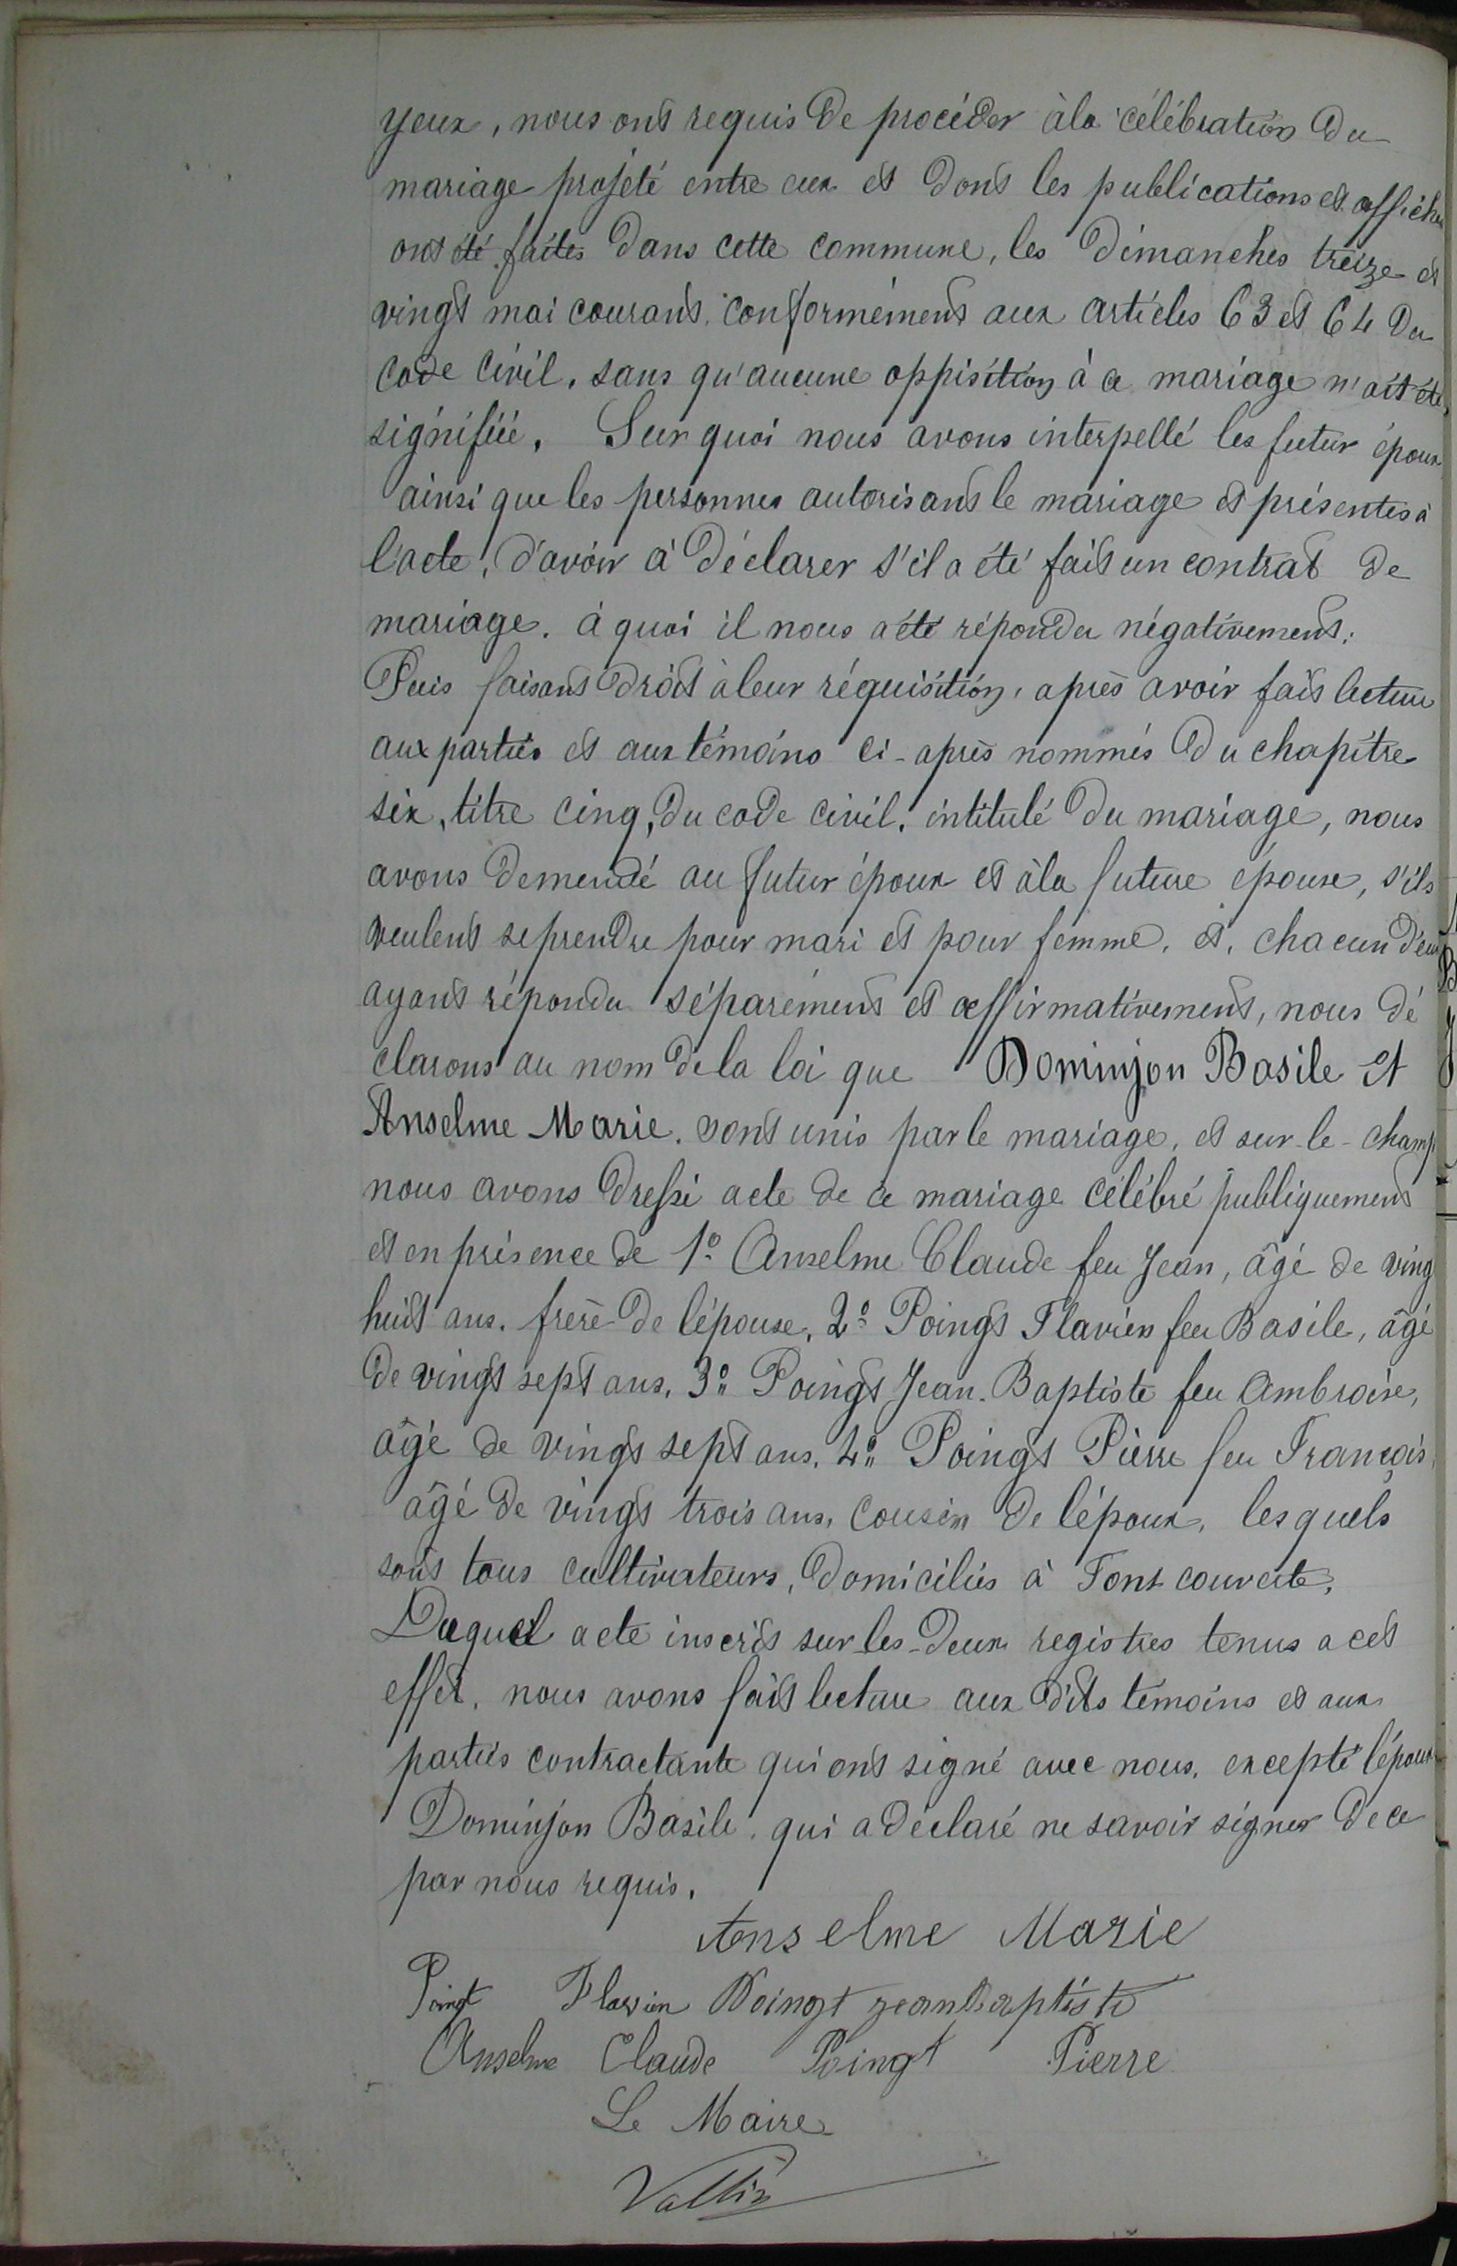 yeux, nous ont requis de procéder à la célébration du
mariage projeté entre eux et dont les publications et affiches
ont été faites dans cette commune, les dimanches treize et
vingt mai courant conformément aux articles 63 et 64 du
code civil, sans qu'aucune oppisition à ce mariage n'ait été
signifiée. Sur quoi nous avons interpellé les futur époux
ainsi que les personnes autorisant le mariage et présentes à
l'acte, d'avoir à déclarer s'il a été fait un contrat de
mariage. à quoi il nous a été répondu négativement.
Puis faisant droit à leur réquisition, après avoir fait lecture
aux parties et aux témoins ci-après nommés du chapitre
six, titre cinq, du code civil, intitulé du mariage, nous
avons demendé au futur époux et à la future épouse, s'ils
veulent se prendre pour mari et pour femme, et, chacun d'eux
ayant répondu séparément et affirmativement, nous dé
clarons au nom de la loi que Dominjon Basile et
Anselme Marie. sont unis par le mariage, et sur-le-champ
nous avons dressé acte de ce mariage célébré publiquement
et en présence de 1º Anselme Claude feu Jean, âgé de ving
huit ans. frère de l'épouse, 2º Poingt Flavien feu Basile, âgé
de vingt sept ans, 3º Poingt Jean-Baptiste feu Ambroise,
âgé de vingt sept ans, 4º Poingt Pierre feu François,
âgé de vingt trois ans, cousin de l'époux, lesquels
sont tous cultivateurs, domiciliés à Fontcouverte.
Duquel acte inscrit sur les deux registres tenus a cet
effet, nous avons fait lecture aux dits témoins et aux
parties contractante qui ont signé avec nous, excepté l'époux
Dominjon Basile, qui a déclaré ne savoir signer de ce
par nous requis.
Anselme Marie
Poingt Flavien Poingt jean Baptiste
Anselme Claude Poingt Pierre
Le Maire
Vallin